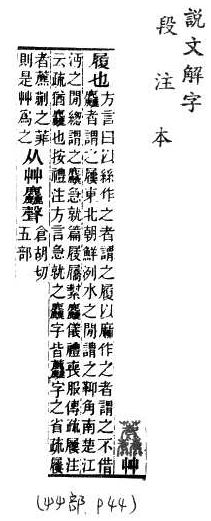 說文解字
段注本
艸
履也方言曰以絲作之者謂之履以麻作之者謂之不借
麤者謂之屨東北朝鮮洌水之閒謂之䩕角南楚江
沔之閒緫謂之麤急就篇屐屩麤儀禮喪服傳疏屨注
云疏猶麤也按禮注方言急就之麤字皆字之省疏屨
者藨蒯之菲
則是艸爲之从艸麤聲倉胡切
五部
(艸部 P44)